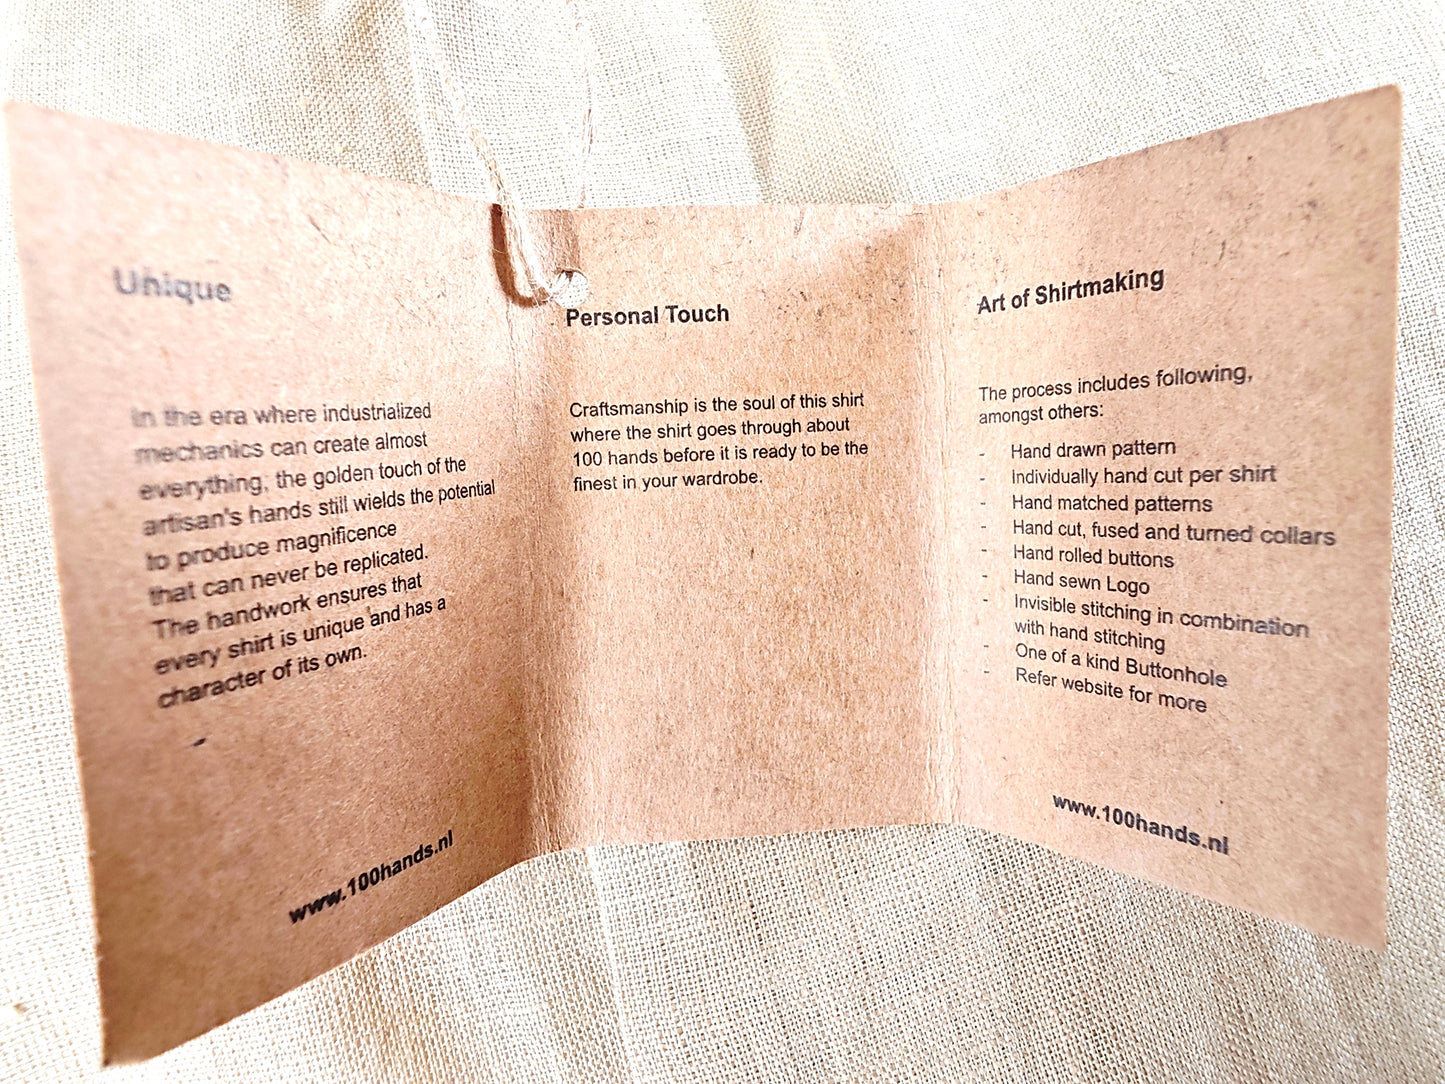 Unique
in the era where industrialized
mechanics can create almost
everything, the golden touch of the
artisan's hands still wields the potential
to produce magnificence
that can never be replicated.
The handwork ensures that
every shirt is unique and has a
character of its own.
www.100hands.nl
Personal Touch
Craftsmanship is the soul of this shirt
where the shirt goes through about
100 hands before it is ready to be the
finest in your wardrobe.
Art of Shirtmaking
The process includes following,
amongst others:
- Hand drawn pattern
- Individually hand cut per shirt
- Hand matched patterns
- Hand cut, fused and turned collars
- Hand rolled buttons
- Hand sewn Logo
- Invisible stitching in combination
with hand stitching
- One of a kind Buttonhole
- Refer website for more
www.100hands.nl